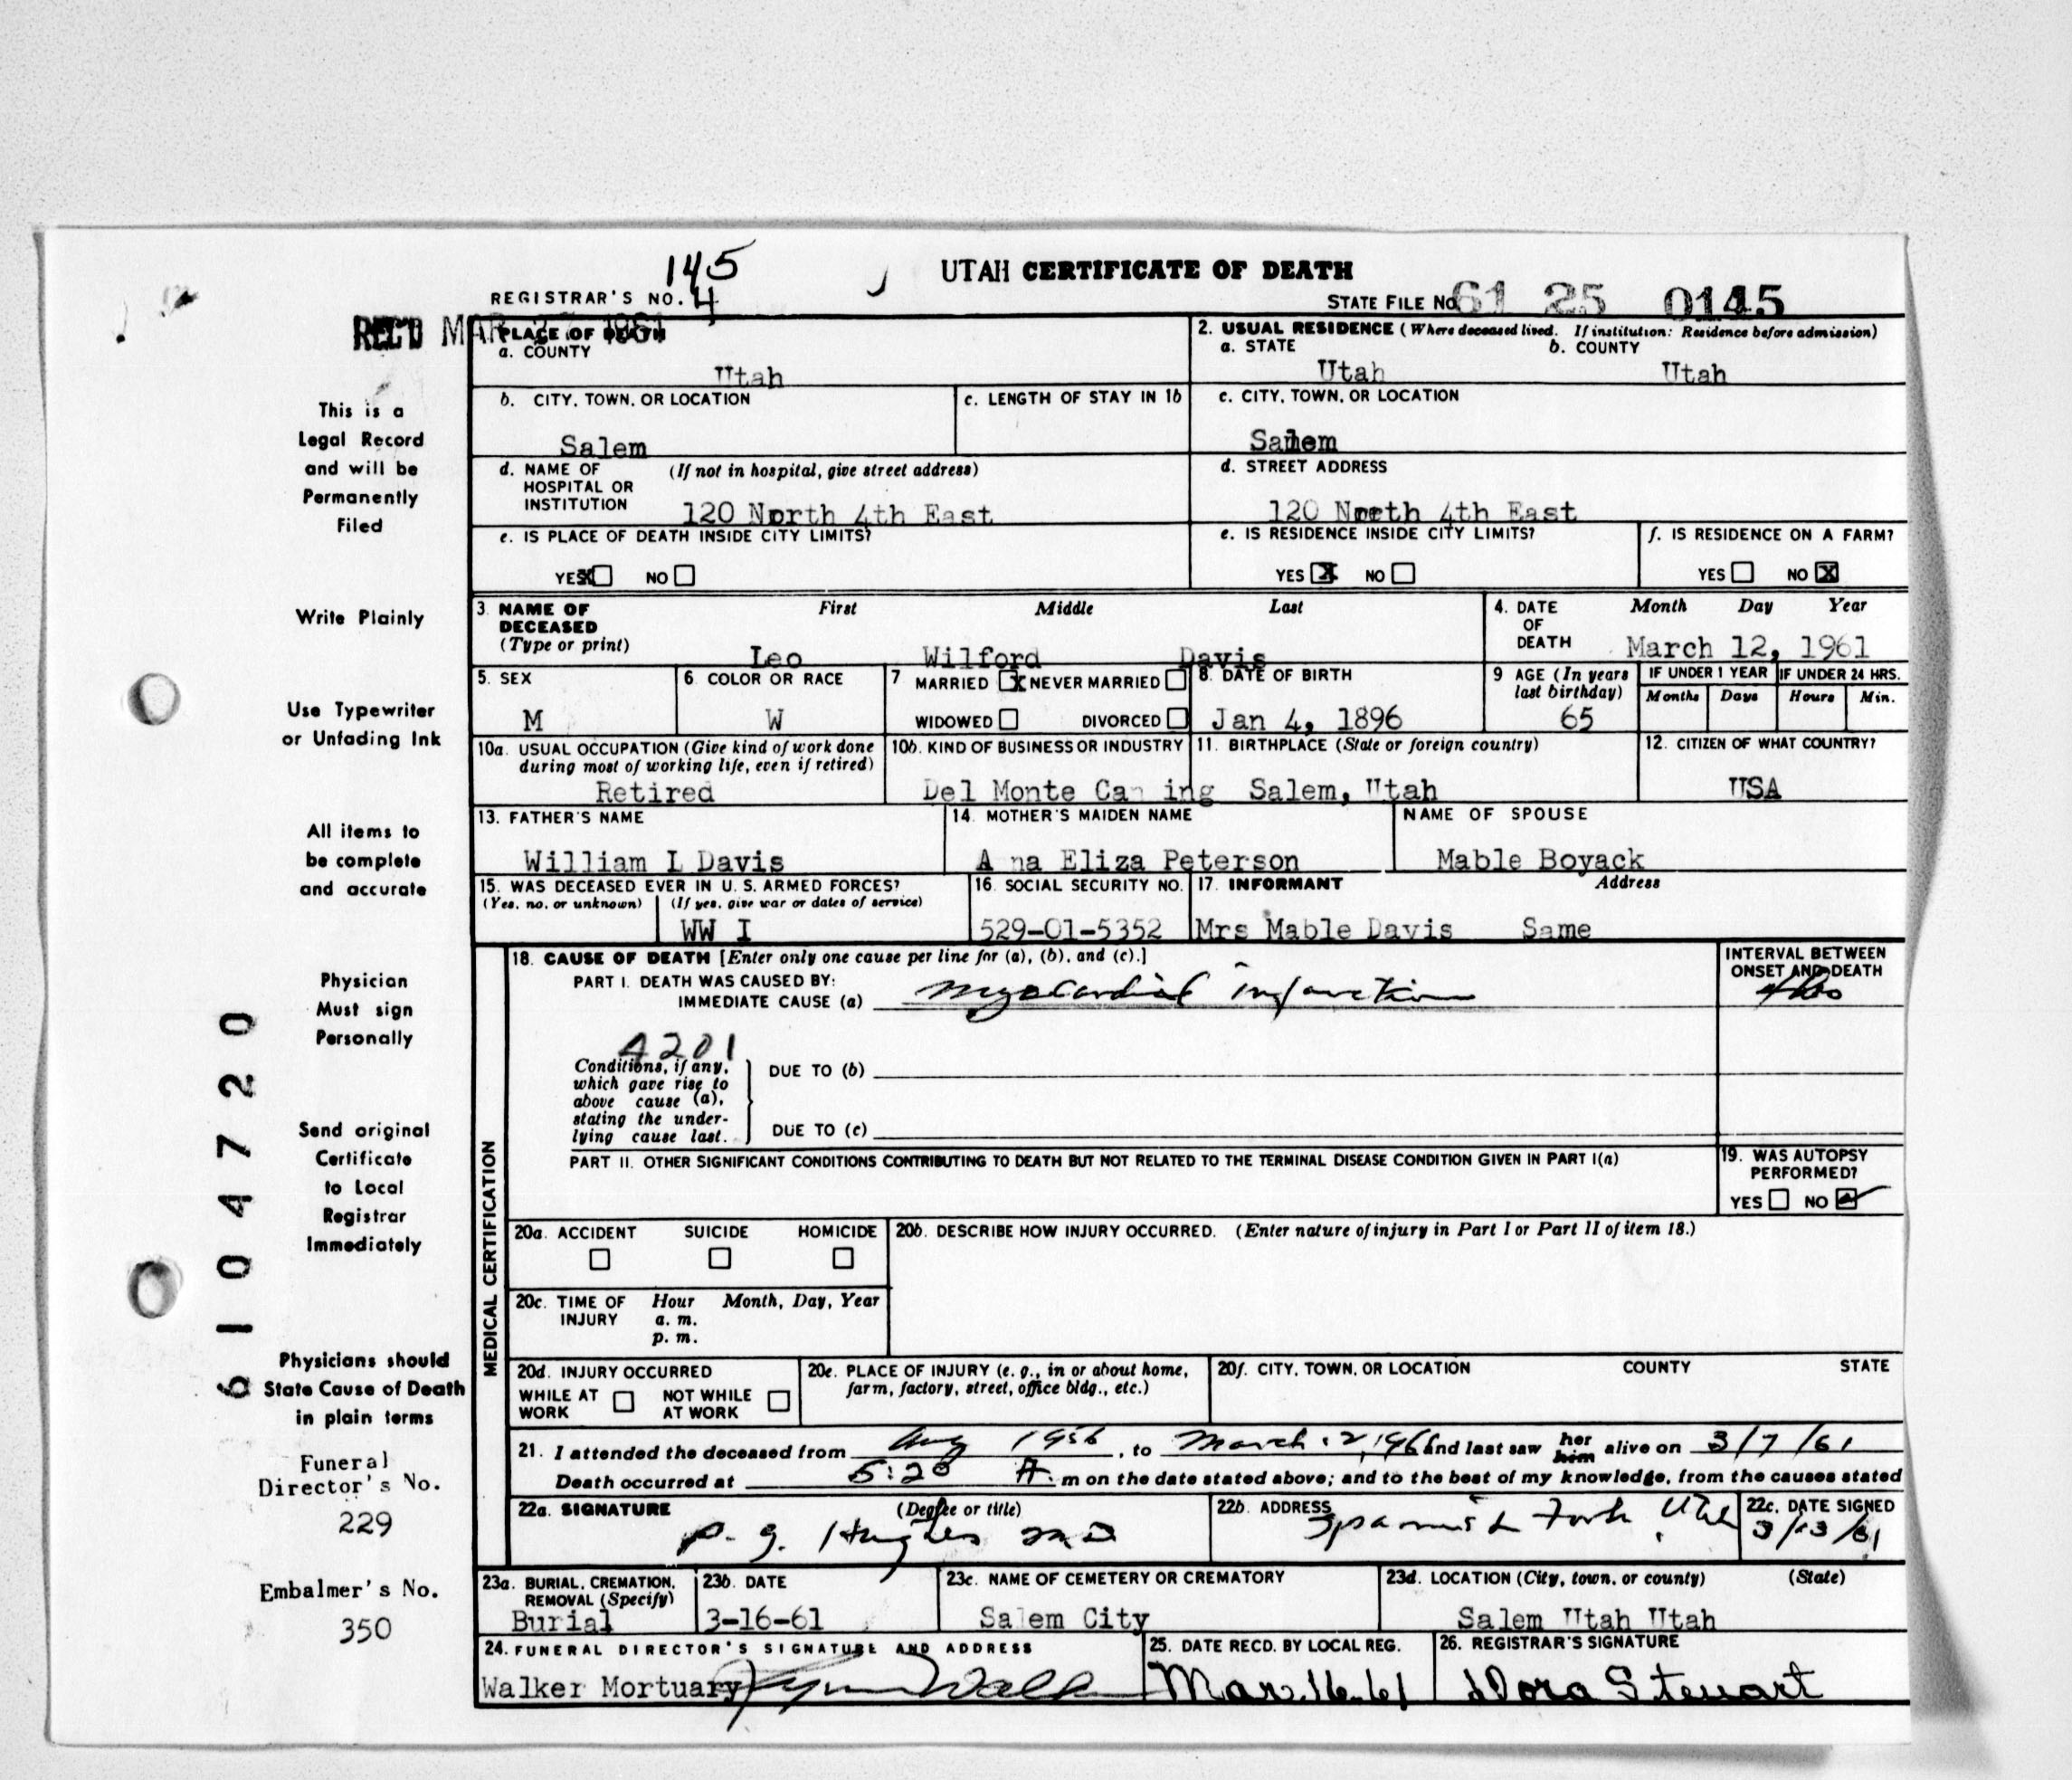 145
UTAH CERTIFICATE OF DEATH
REGISTRAR'S NO. 4
STATE FILE NO. 61 25 0145
REC'D MAR 27 1961
PLACE OF DEATH
a. COUNTY
Utah
2. USUAL RESIDENCE (Where deceased lived. If institution: Residence before admission)
a. STATE b. COUNTY
Utah Utah
b. CITY, TOWN, OR LOCATION
Salem
c. LENGTH OF STAY IN 1b
c. CITY, TOWN, OR LOCATION
Salem
d. NAME OF HOSPITAL OR INSTITUTION (If not in hospital, give street address)
120 North 4th East
d. STREET ADDRESS
120 North 4th East
e. IS PLACE OF DEATH INSIDE CITY LIMITS?
YES X NO
e. IS RESIDENCE INSIDE CITY LIMITS?
YES X NO
f. IS RESIDENCE ON A FARM?
YES NO X
3. NAME OF DECEASED (Type or print)
First Middle Last
Leo Wilford Davis
4. DATE OF DEATH
Month Day Year
March 12, 1961
5. SEX
M
6. COLOR OR RACE
W
7 MARRIED X NEVER MARRIED
WIDOWED DIVORCED
8. DATE OF BIRTH
Jan 4, 1896
9 AGE (In years last birthday)
65
IF UNDER 1 YEAR IF UNDER 24 HRS.
Months Days Hours Min.
10a. USUAL OCCUPATION (Give kind of work done during most of working life, even if retired)
Retired
10b. KIND OF BUSINESS OR INDUSTRY
Del Monte Can ing
11. BIRTHPLACE (State or foreign country)
Salem, Utah
12. CITIZEN OF WHAT COUNTRY?
USA
13. FATHER'S NAME
William L Davis
14. MOTHER'S MAIDEN NAME
A na Eliza Peterson
NAME OF SPOUSE
Mable Boyack
15. WAS DECEASED EVER IN U. S. ARMED FORCES?
(Yes, no, or unknown) (If yes, give war or dates of service)
WW I
16. SOCIAL SECURITY NO.
529-01-5352
17. INFORMANT Address
Mrs Mable Davis Same
18. CAUSE OF DEATH [Enter only one cause per line for (a), (b), and (c).]
INTERVAL BETWEEN ONSET AND DEATH
PART I. DEATH WAS CAUSED BY:
IMMEDIATE CAUSE (a) myocardial infarction
4201
Conditions, if any, which gave rise to above cause (a), stating the underlying cause last.
DUE TO (b)
DUE TO (c)
PART II. OTHER SIGNIFICANT CONDITIONS CONTRIBUTING TO DEATH BUT NOT RELATED TO THE TERMINAL DISEASE CONDITION GIVEN IN PART I(a)
19. WAS AUTOPSY PERFORMED?
YES NO
MEDICAL CERTIFICATION
20a. ACCIDENT SUICIDE HOMICIDE
20b. DESCRIBE HOW INJURY OCCURRED. (Enter nature of injury in Part I or Part II of item 18.)
20c. TIME OF INJURY Hour Month, Day, Year
a. m.
p. m.
20d. INJURY OCCURRED
WHILE AT WORK NOT WHILE AT WORK
20e. PLACE OF INJURY (e. g., in or about home, farm, factory, street, office bldg., etc.)
20f. CITY, TOWN, OR LOCATION COUNTY STATE
21. I attended the deceased from Aug 1956, to March 12, 1961 and last saw her him alive on 3/7/61
Death occurred at 5:20 A m on the date stated above; and to the best of my knowledge, from the causes stated
22a. SIGNATURE (Degree or title)
P. G. Hughes MD
22b. ADDRESS
Spanish Fork, Utah
22c. DATE SIGNED
3/13/61
23a. BURIAL, CREMATION, REMOVAL (Specify)
Burial
23b. DATE
3-16-61
23c. NAME OF CEMETERY OR CREMATORY
Salem City
23d. LOCATION (City, town, or county) (State)
Salem Utah Utah
24. FUNERAL DIRECTOR'S SIGNATURE AND ADDRESS
Walker Mortuary
25. DATE RECD. BY LOCAL REG.
Mar. 16-61
26. REGISTRAR'S SIGNATURE
Dora Stewart
This is a
Legal Record
and will be
Permanently
Filed
Write Plainly
Use Typewriter
or Unfading Ink
All items to
be complete
and accurate
Physician
Must sign
Personally
Send original
Certificate
to Local
Registrar
Immediately
Physicians should
State Cause of Death
in plain terms
Funeral
Director's No.
229
Embalmer's No.
350
6104720